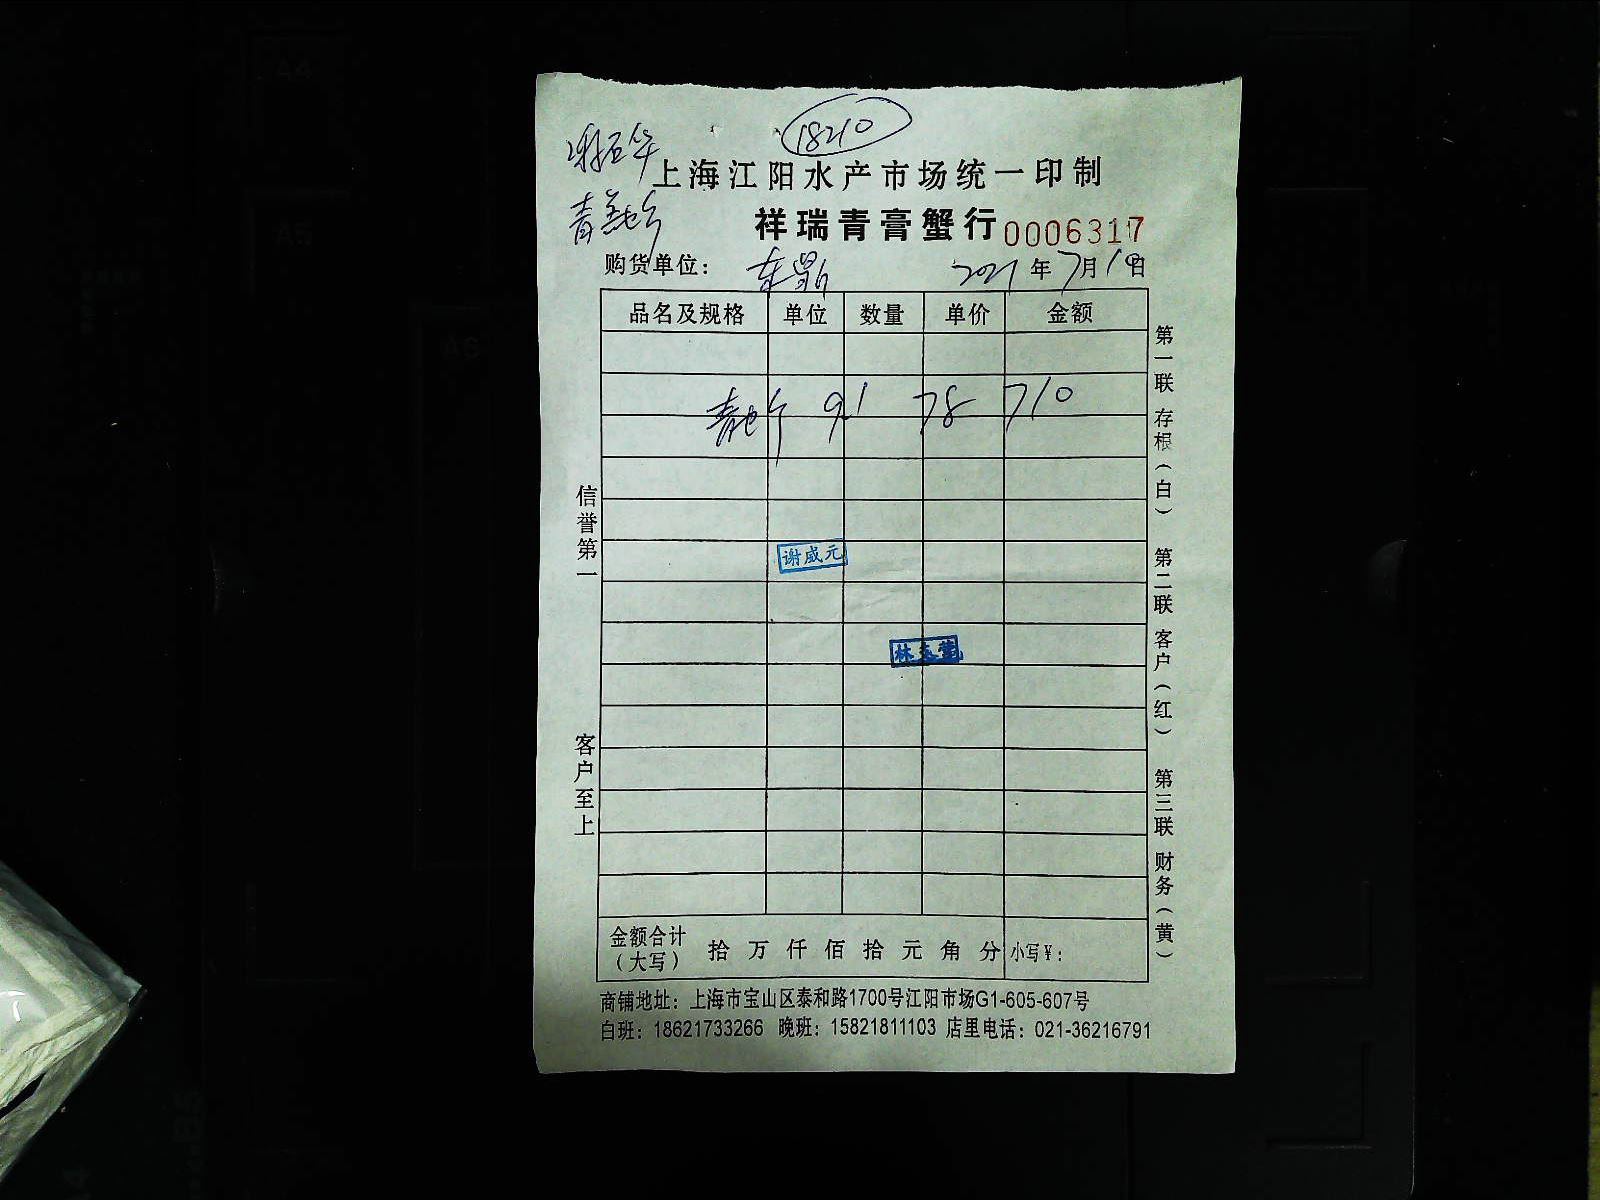 18210
上海江阳水产市场统一印制
祥瑞青膏蟹行 0006317
购货单位: 东鼎 2021年7月19日
品名及规格 单位 数量 单价 金额
9.1 78 710
谢成元
林
金额合计(大写) 拾 万 仟 佰 拾 元 角 分 小写¥:
商铺地址: 上海市宝山区泰和路1700号江阳市场G1-605-607号
白班: 18621733266 晚班: 15821811103 店里电话: 021-36216791
信誉第一
客户至上
第一联 存根(白) 第二联 客户(红) 第三联 财务(黄)